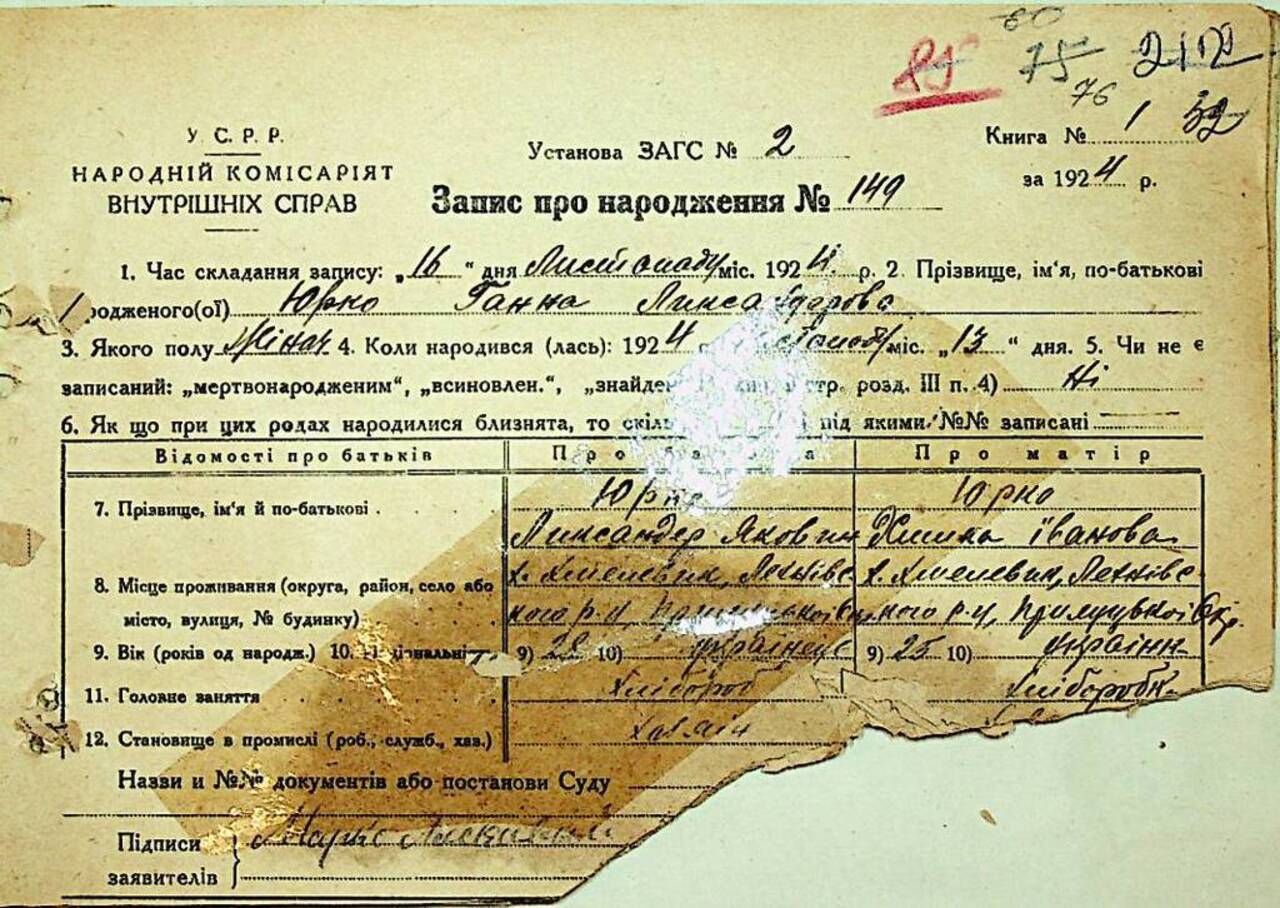 85 60 75 76 212
У. С. Р. Р.
НАРОДНІЙ КОМІСАРІЯТ
ВНУТРІШНІХ СПРАВ
Установа ЗАГС № 2
Книга № 1 32
за 1924 р.
Запис про народження № 149
1. Час складання запису: „16“ дня Листопаду міс. 1924 р. 2. Прізвище, ім'я, по-батькові
родженого(ої) Юрко Ганна Ликсандрова
3. Якого полу Жіноч 4. Коли народився (лась): 1924 міс. „13“ дня. 5. Чи не є
записаний: „мертвонародженим“, „всиновлен.“, „знайде стр. розд. III п. 4) Ні
6. Як що при цих родах народилися близнята, то скіль під якими №№ записані
Відомості про батьків Про Про матір
7. Прізвище, ім'я й по-батькові Юрко Юрко
Ликсандер Якович Іванова
8. Місце проживання (округа, район, село або х. Хмелевик, х. Хмелевик,
місто, вулиця, № будинку) кого р-ну, кого р-ну, Прилуцької Окр.
9. Вік (років од народж.) 10. 9) 28 10) українець 9) 25 10) україн
11. Головне заняття Хлібороб Хліборобк
12. Становище в промислі (роб., служб., хаз.) Хазяїн
Назви и №№ документів або постанови Суду
Підписи
заявителів